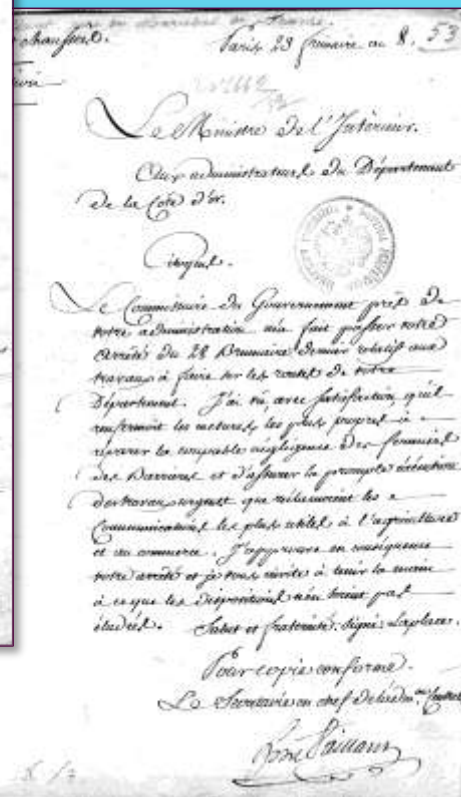 chaussées.
Paris 23 frimaire an 8. 53
Le Ministre De l'Intérieur.
Aux administrateurs du Département
De la Côte d'or.
Citoyens.
Le Commissaire du Gouvernement près De
votre administration m'a fait passer votre
arrêté du 28 Brumaire Dernier relatif aux
travaux à faire sur les routes De votre
Département. J'ai vu, avec Satisfaction, qu'il
renfermoit les mesures les plus propres à
réparer la coupable négligence Des fermiers
des Barrières et d'assurer la prompte exécution
des travaux urgents que réclamoient les
Communications les plus utiles à l'agriculture
et au commerce. J'approuve en conséquence
votre arrêté et je vous invite à tenir la main
à ce que les Dispositions n'en soient pas
éludées. Salut et fraternité. Signé Laplace.
Pour copie conforme.
Le Secrétaire en chef De l'adm.on Centrale